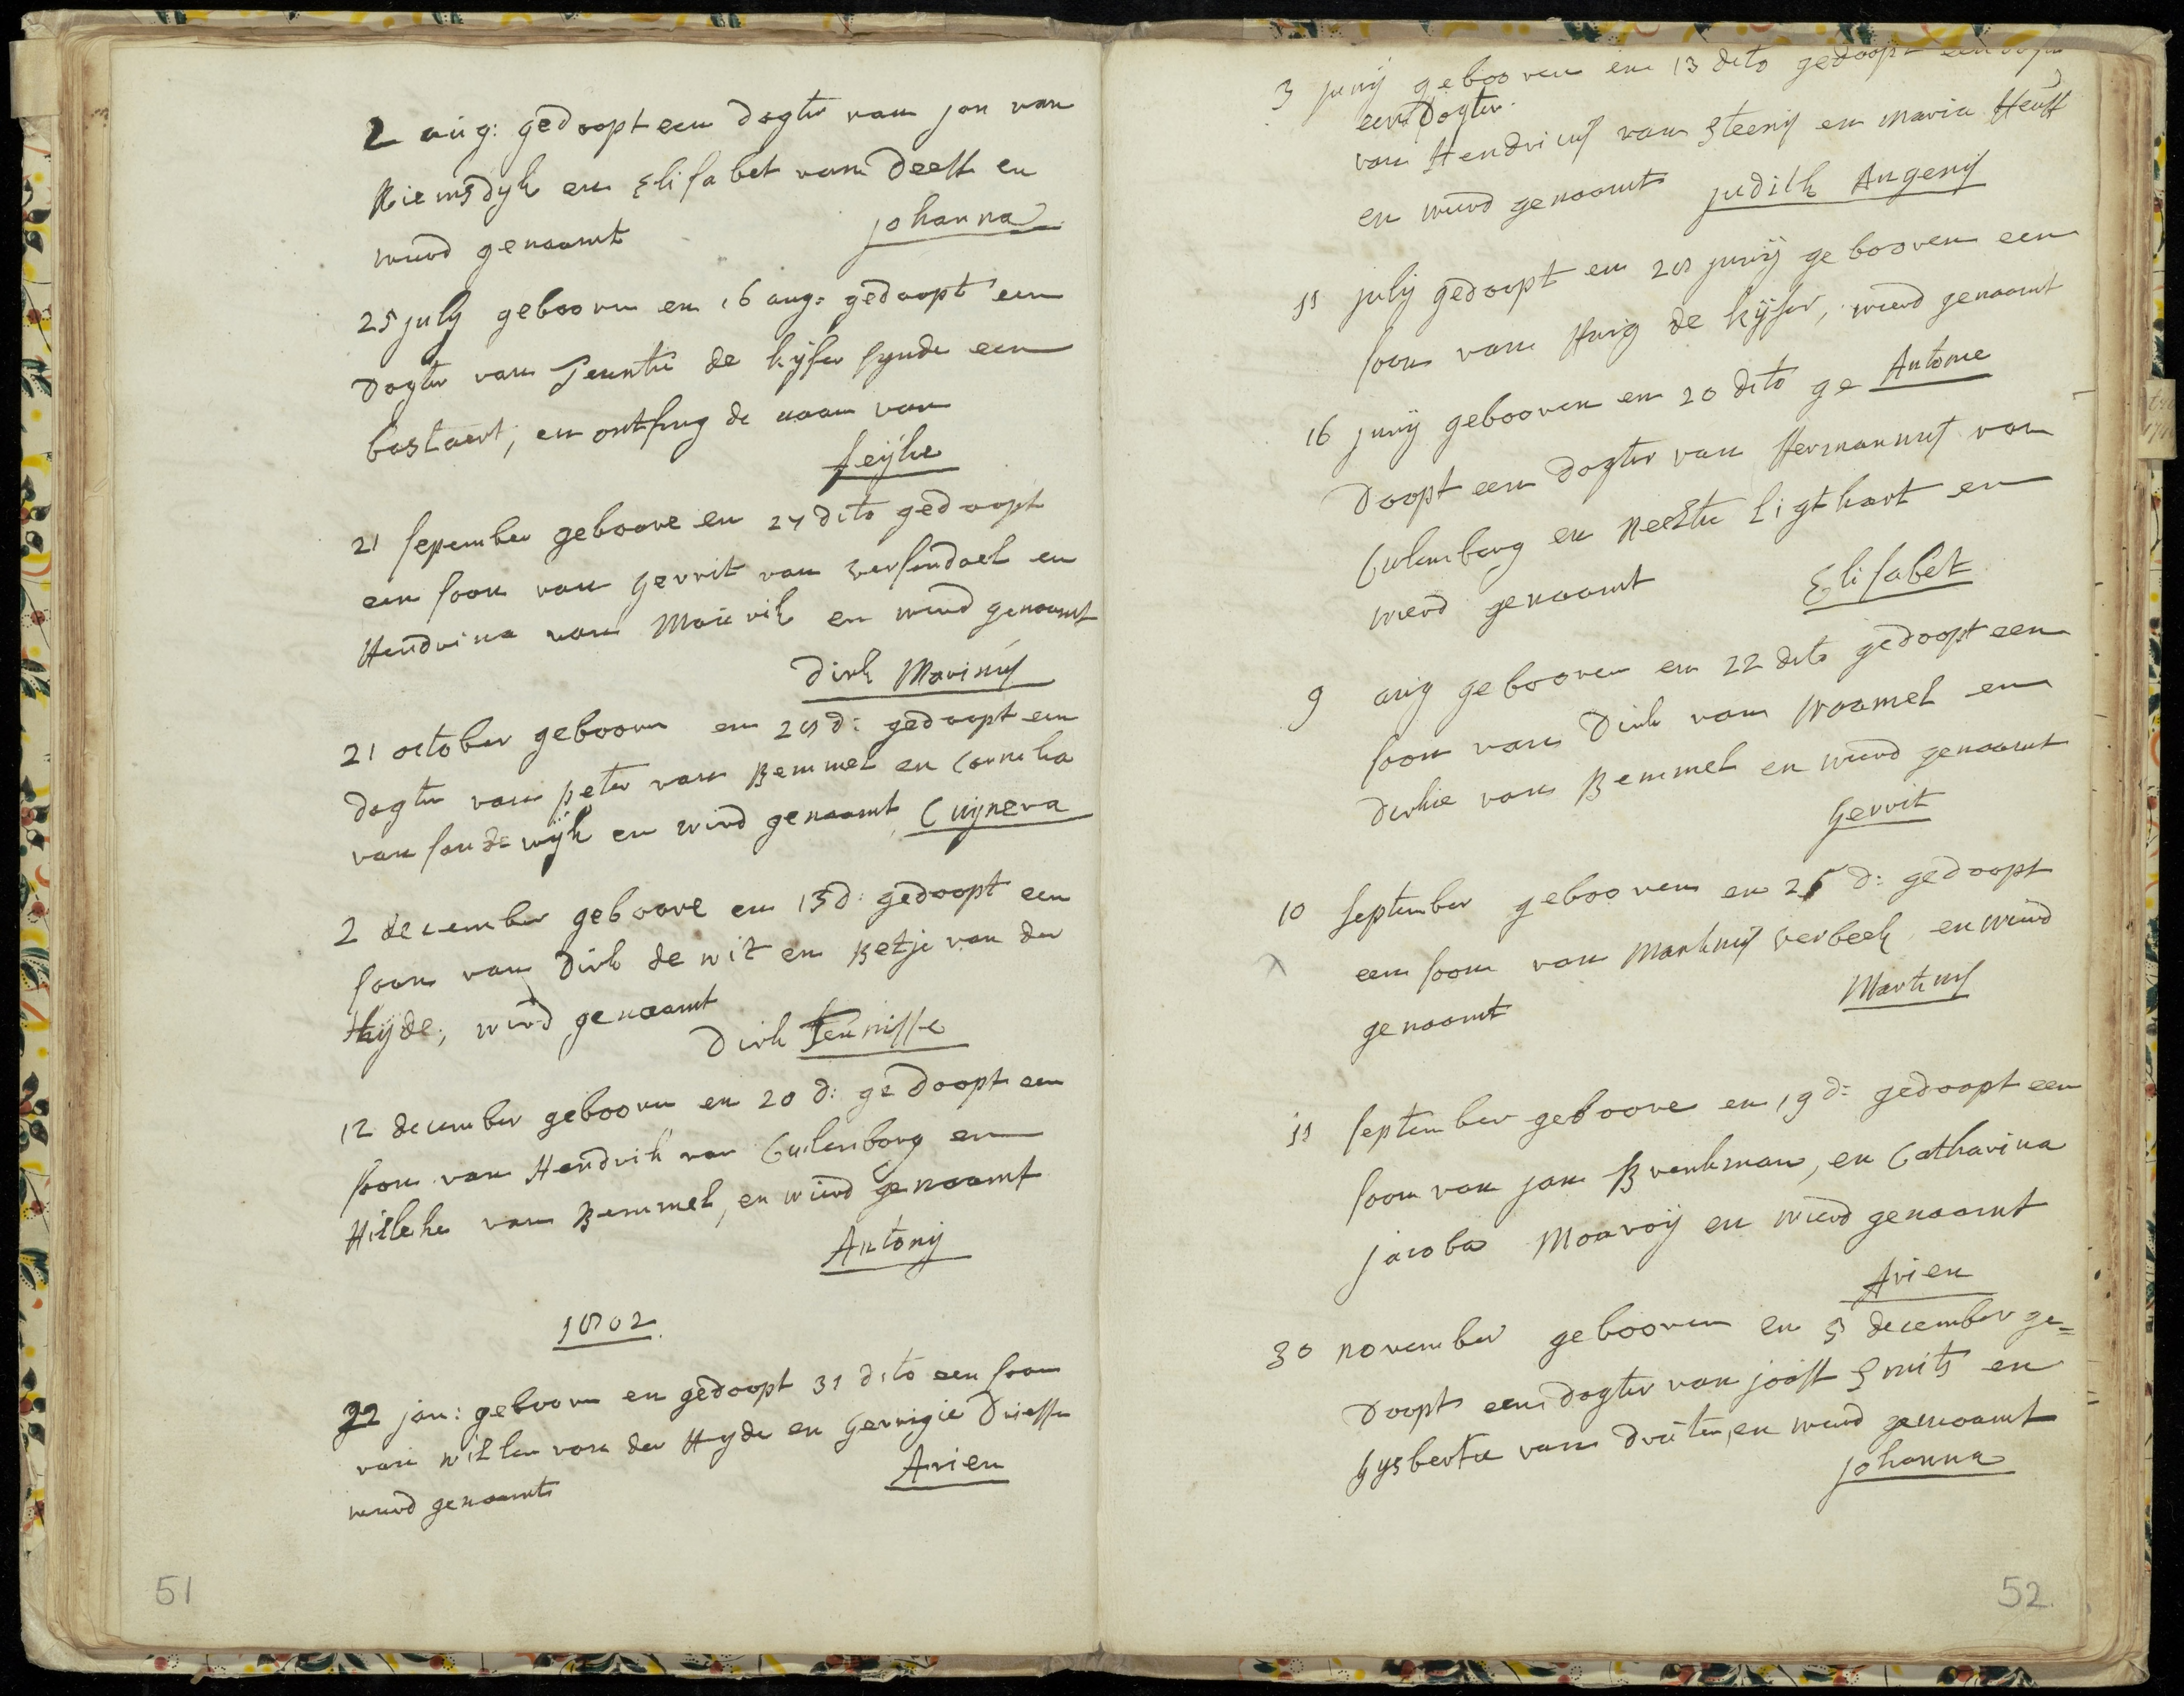 2 aug: gedoopt een dogter van jan van
Riemsdyk en Elisabet van Deelt en
wierd genaamt johanna
25 july geboorn en 16 aug: gedoopt een
dogter van Teuntie de kijser synde een
bastaert, en ontfing de naam van
feijke
21 sepember geboore en 27 dito gedoopt
een soon van gerrit van versendael en
Hendrina van Maurik en wierd genaamt
Dirk Marinus
21 october geboorn en 28 d: gedoopt een
dogter van peter van Bemmel en Cornelia
van sandewijk en wird genaamt Cuijnera
2 december geboore en 13 d: gedoopt een
soon van Dirk de wit en Betje van der
Heijde, wird genaamt
Dirk Teunisse
12 december geboorn en 20 d: gedoopt een
soon van Hendrik van Culenborg en
Hilleke van Bemmel, en wierd genaamt
Antonij
1802
22 jan: geboorn en gedoopt 31 dito een soon
van willem van der Hyde en Gerrigie Driesse
wierd genaamt Arien
51
3 junij gebooren en 13 dito gedoopt een dogter
een Dogter
van Hendricus van Steenis en Maria Heuff
en wierd genaamt judith Angenis
11 julij gedoopt en 28 junij gebooren een
soon van Huig de kijser, wierd genaamt
Antonie
16 junij gebooren en 20 dito ge
doopt een dogter van Hermannus van
Culenborg en Neeltie Ligthart en
wierd genaamt Elisabet
9 aug gebooren en 22 dito gedoopt een
soon van Dirk van Waamel en
Dirkie van Bemmel en wierd genaamt
Gerrit
10 september gebooren en 25 d: gedoopt
een soon van Martinus verbeek en wierd
genaamt Martinus
11 september geboore en 19 d: gedoopt een
soon van jan Brenkman, en Catharina
jacoba Moaroij en wierd genaamt
Arien
30 november gebooren en 5 december ge=
doopt een dogter van joost Smits en
Gysbertie van Druten, en wierd genaamt
johanna
52.